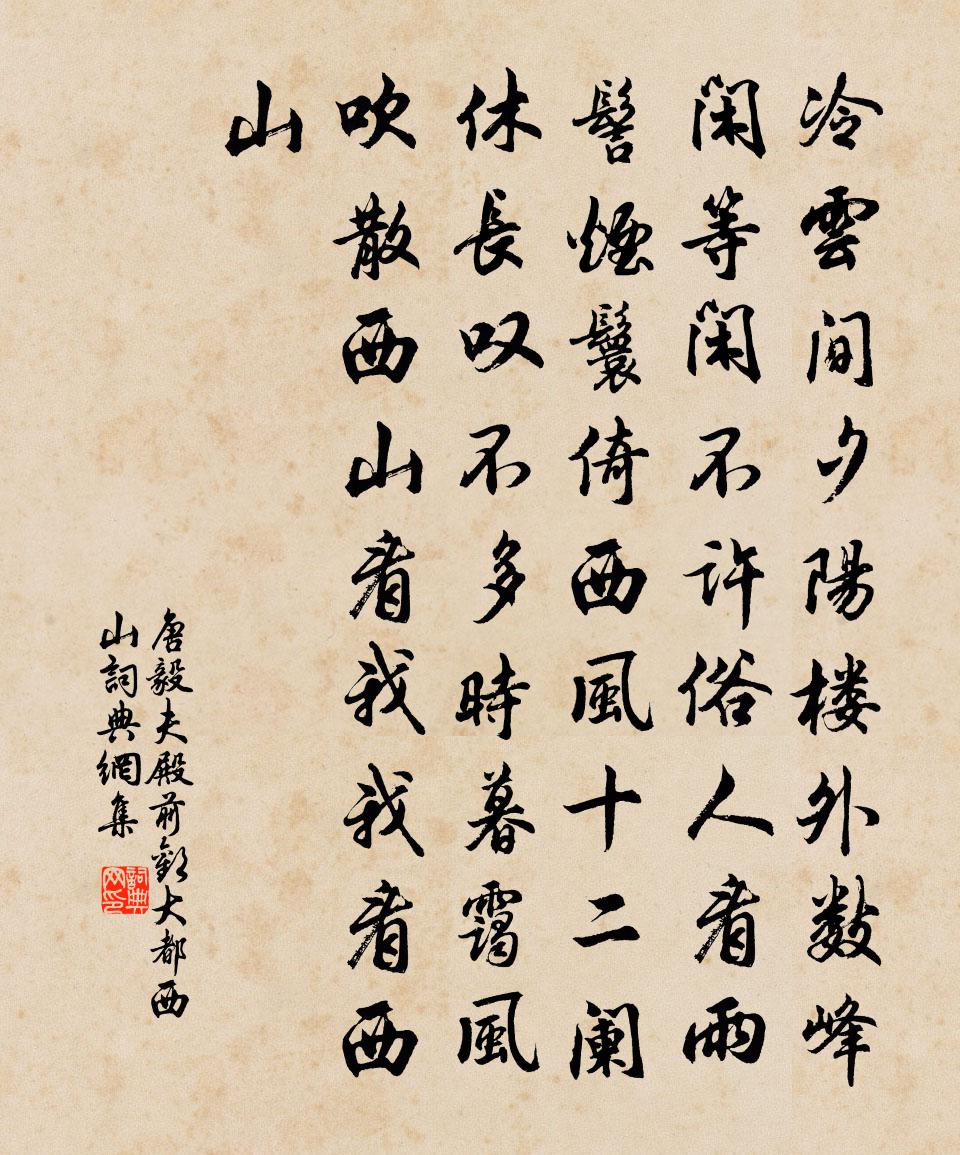 冷雲間夕陽楼外数峰
閑等閑不許俗人看雨
髻煙鬟倚西風十二阑
休長叹不多時暮靄風
吹散西山看我我看西
山
唐毅夫殿前歡大都西
山詞典網集
詞典网印